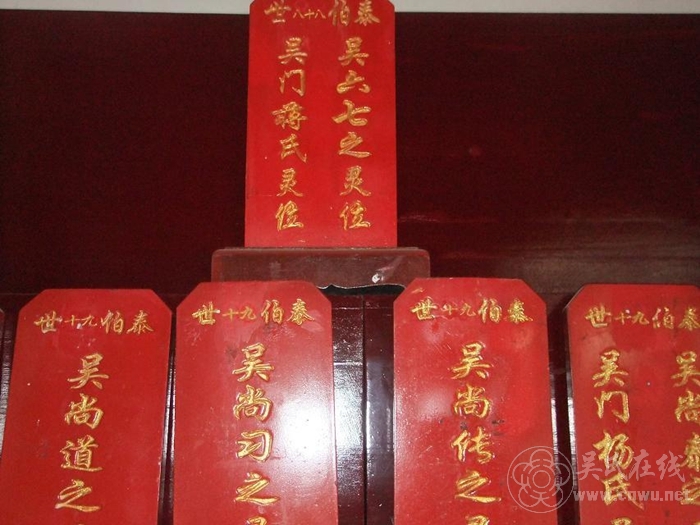 泰伯八十八世
吴六七之灵位
吴门蒋氏灵位
泰伯九十世
吴尚道之
泰伯九十世
吴尚习之灵
泰伯九十世
吴尚传之灵
泰伯九十世
吴尚
吴门杨氏
吴氏在线
www.cnwu.net